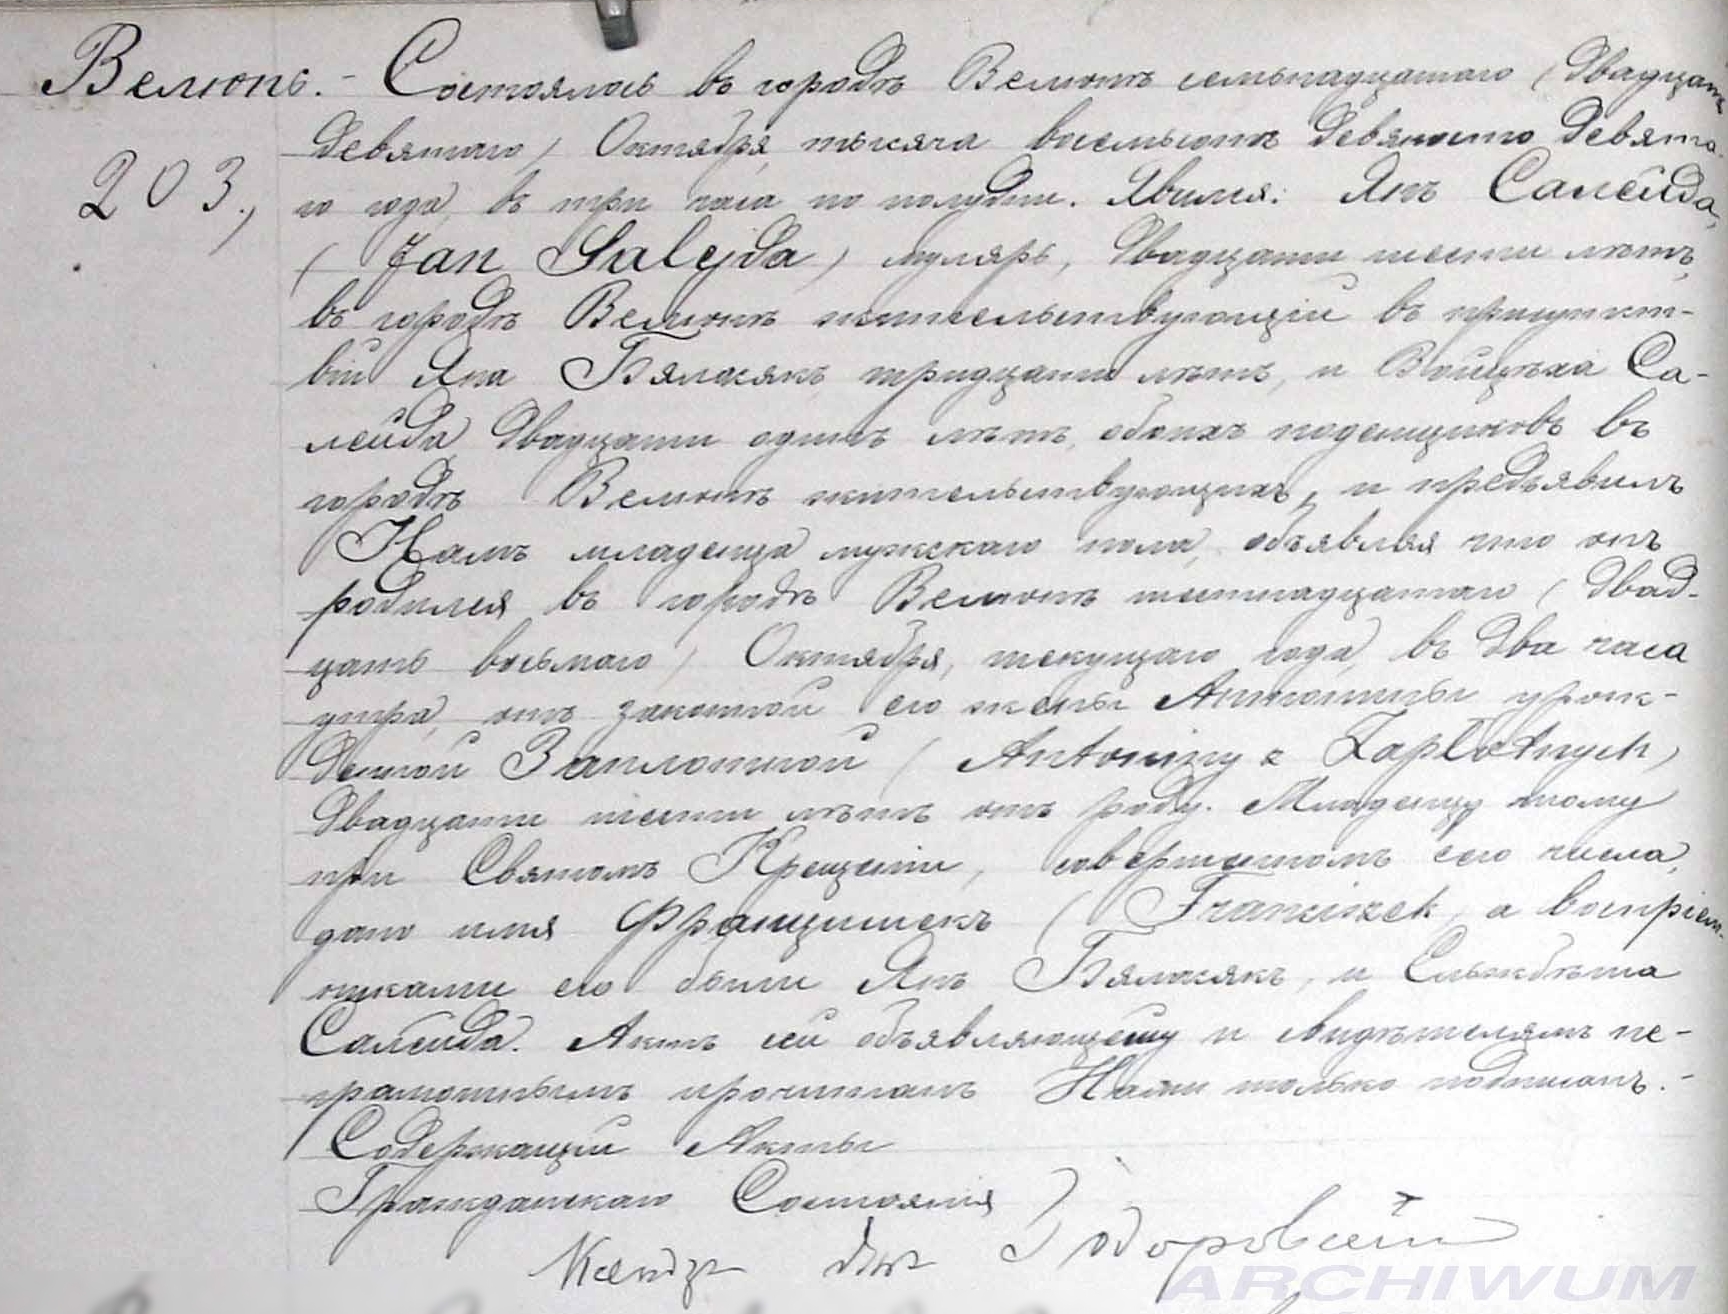 Велюнь. - Состоялось въ городѣ Велюнѣ семьнадцатаго (двадцать
203., девятаго) Октября тысяча восемьсотъ девяносто девята-
го года, въ три часа по полудни. Явился: Янъ Салейда,
(Jan Salejda) муляръ, двадцати шести лѣтъ,
въ городѣ Велюнѣ жительствующій въ присутст-
віи Яна Бяласякъ, тридцати лѣтъ, и Войцѣха Са-
лейда, двадцати одинъ лѣтъ, обоихъ поденщиковъ въ
городѣ Велюнѣ жительствующихъ, и предъявилъ
Намъ младенца мужскаго пола, объявляя что онъ
родился въ городѣ Велюнѣ шестнадцатаго (двад-
цать восьмаго) Октября, текущаго года, въ два часа
утра, отъ законной его жены Антонины урож-
денной Заплотной (Antoniny z Zapłotnych)
двадцати шести лѣтъ отъ роду. Младенцу тому
при Святомъ Крещеніи, совершонномъ сего числа,
дано имя Францишекъ (Franciszek, а воспріем-
никами его были Янъ Бяласякъ, и Ельжбѣта
Салейда. Актъ сей объявляющему и свидѣтелямъ не-
грамотнымъ прочитанъ Нами только подписанъ. -
Содержащій Акты
Гражданскаго Состоянія
Ксендзъ